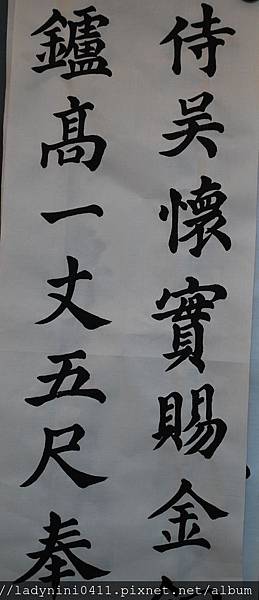 侍吴懷實賜金
鑪髙一丈五尺奉
//ladynini0411.pixnet.net/album